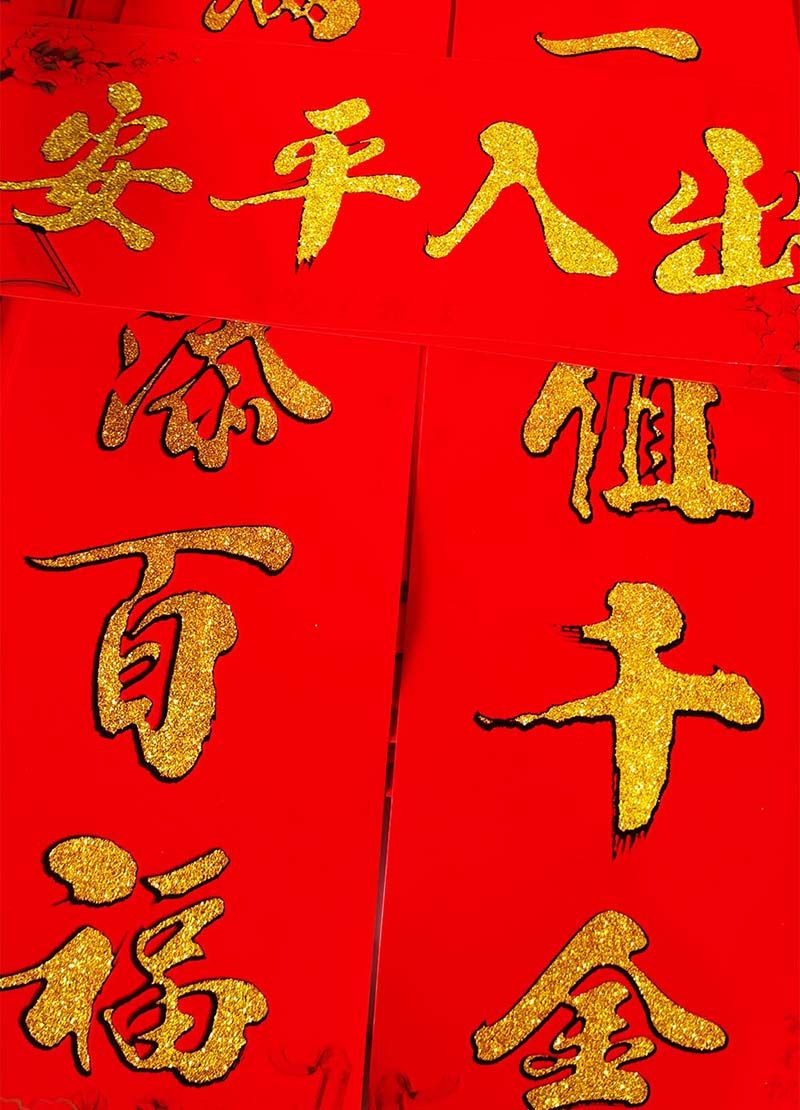 一
出入平安
值千金
添百福